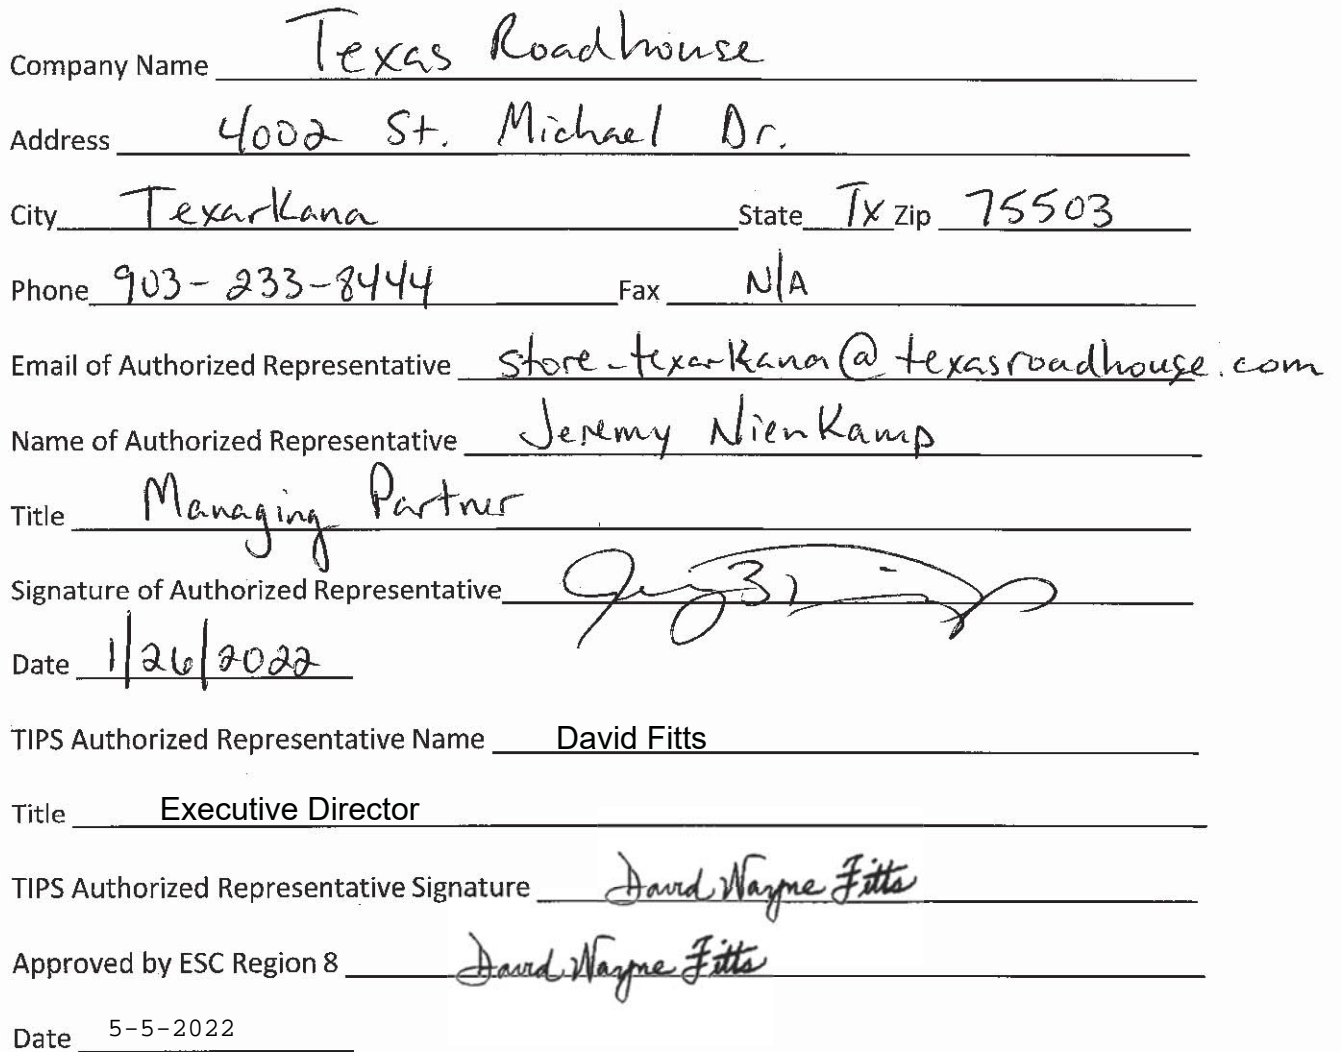 Company Name Texas Roadhouse
Address 4002 St. Michael Dr.
City Texarkana State Tx Zip 75503
Phone 903-233-8444 Fax N/A
Email of Authorized Representative store_texarkana@texasroadhouse.com
Name of Authorized Representative Jeremy Nienkamp
Title Managing Partner
Signature of Authorized Representative
Date 1/26/2022
TIPS Authorized Representative Name David Fitts
Title Executive Director
TIPS Authorized Representative Signature David Wayne Fitts
Approved by ESC Region 8 David Wayne Fitts
Date 5-5-2022